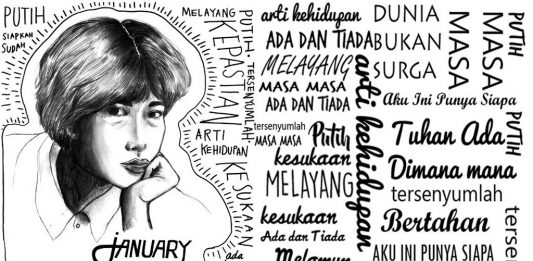 PUTIH
SIAPKAH
SUDAH
MELAYANG
PUTIH
TERSENYUMLAH
KEPASTIAN
ARTI
KEHIDUPAN
KESUKAAN
ada
JANUARY
arti kehidupan
ADA DAN TIADA
MELAYANG
MASA MASA
ADA DAN TIADA
tersenyumlah
MASA MASA
Putih
kesukaan
MELAYANG
kesukaan
Ada dan Tiada
Melamun
arti kehidupan
DUNIA
BUKAN
SURGA
MASA
MASA
PUTIH
Aku Ini Punya Siapa
PUTIH
Tuhan Ada
Dimana mana
tersenyumlah
Bertahan
AKU INI PUNYA SIAPA